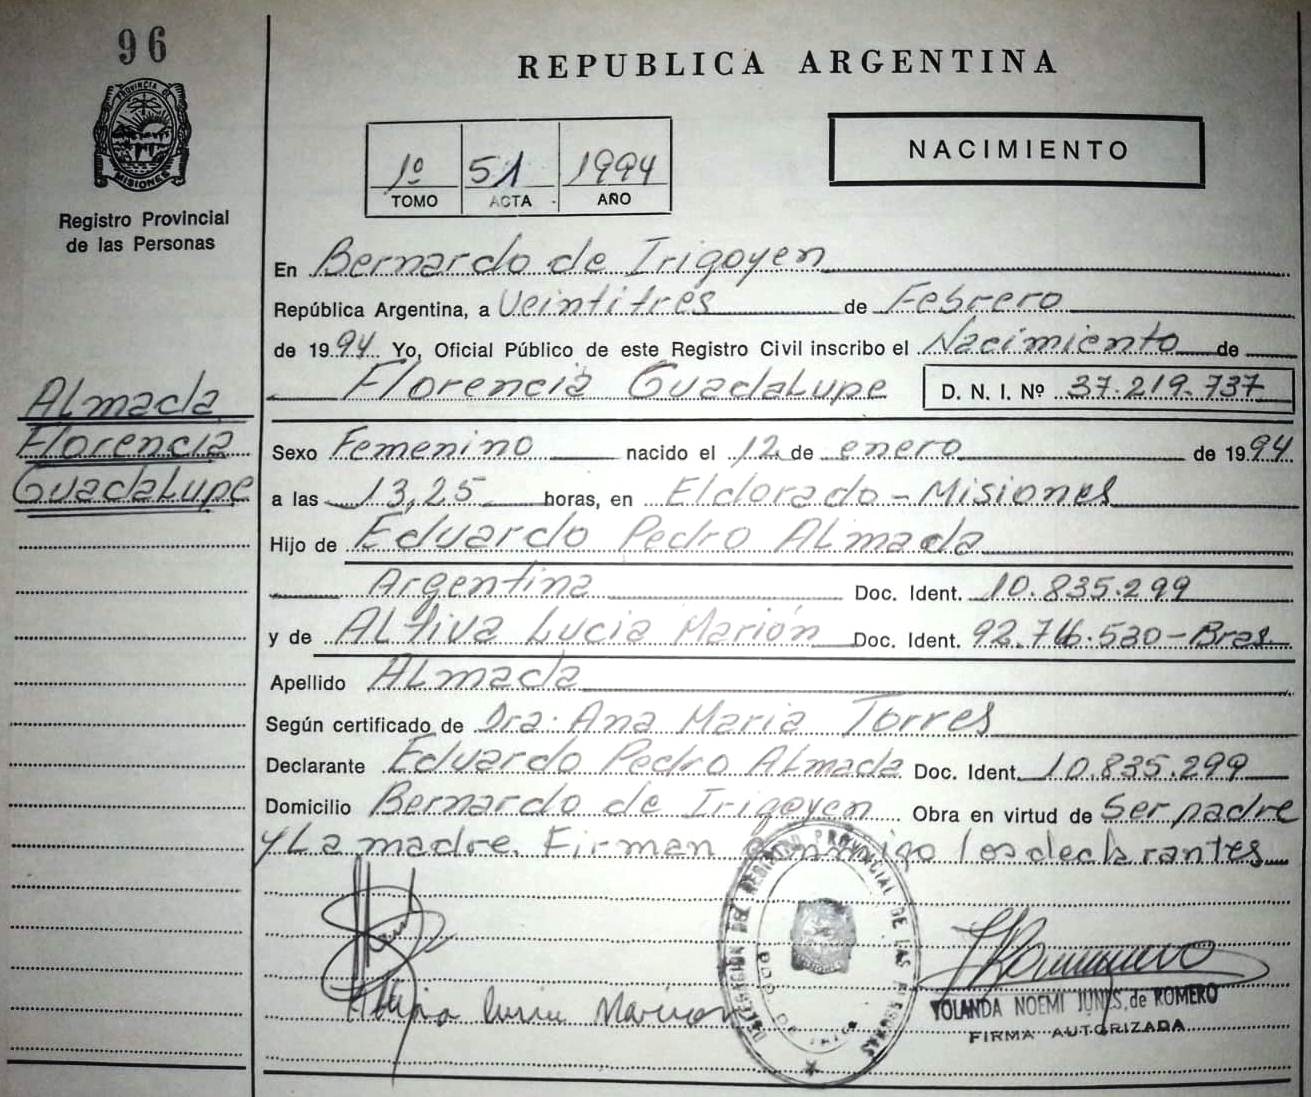 96
PROVINCIA DE
MISIONES
Registro Provincial
de las Personas
REPUBLICA ARGENTINA
1º 51 1994
TOMO ACTA AÑO
NACIMIENTO
En Bernardo de Irigoyen
República Argentina, a Veintitres de Febrero
de 1994 Yo, Oficial Público de este Registro Civil inscribo el Nacimiento de
Florencia Guadalupe D. N. I. Nº 37.219.737
Almada
Florencia
Guadalupe
Sexo Femenino nacido el 12 de enero de 1994
a las 13,25 horas, en Eldorado - Misiones
Hijo de Eduardo Pedro Almada
Argentina Doc. Ident. 10.835.299
y de Altiva Lucia Marión Doc. Ident. 92.716.530 - Bras.
Apellido Almada
Según certificado de Dra. Ana Maria Torres
Declarante Eduardo Pedro Almada Doc. Ident. 10.835.299
Domicilio Bernardo de Irigoyen Obra en virtud de Ser padre
y La madre. Firman conmigo los declarantes
DELEGACION DEL REGISTRO PROVINCIAL DE LAS PERSONAS
Altiva Lucia Marion
YOLANDA NOEMI JUNES de ROMERO
FIRMA AUTORIZADA